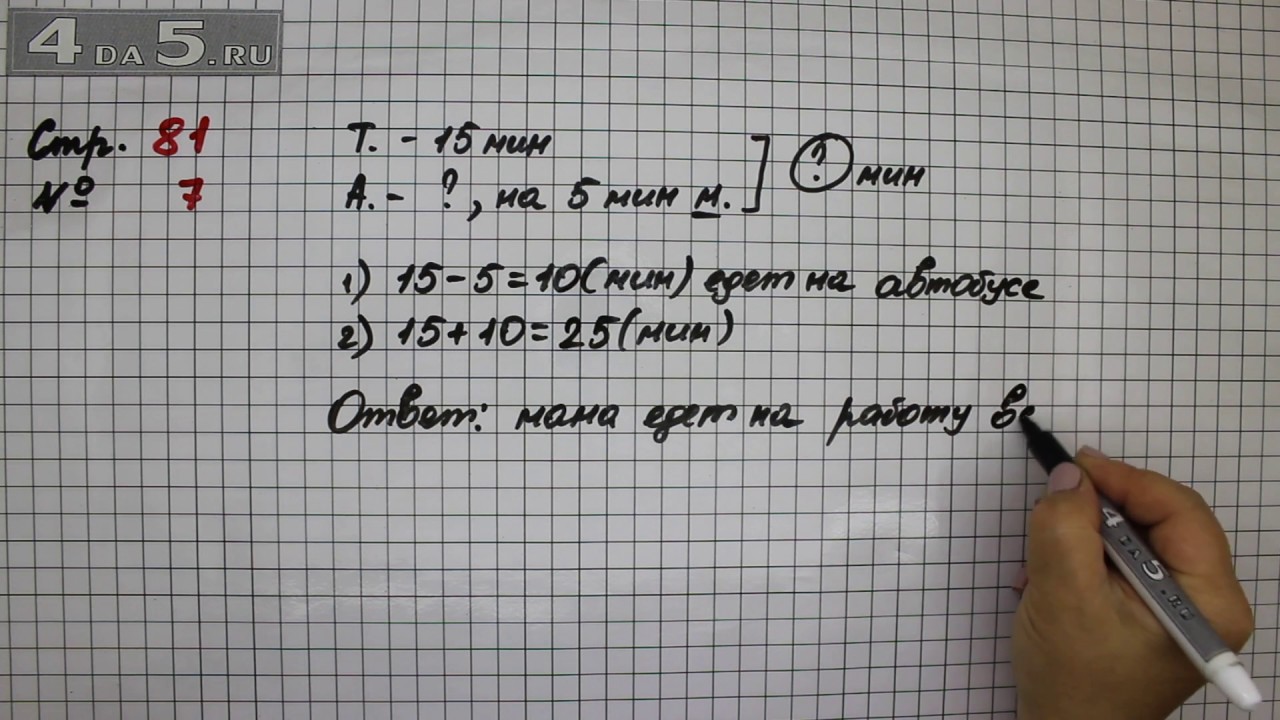 4 DA 5.RU
Стр. 81
№ 7
Т. - 15 мин
А. - ?, на 5 мин м.
? мин
1) 15 - 5 = 10 (мин) едет на автобусе
2) 15 + 10 = 25 (мин)
Ответ: мама едет на работу вс
4 DA 5.RU